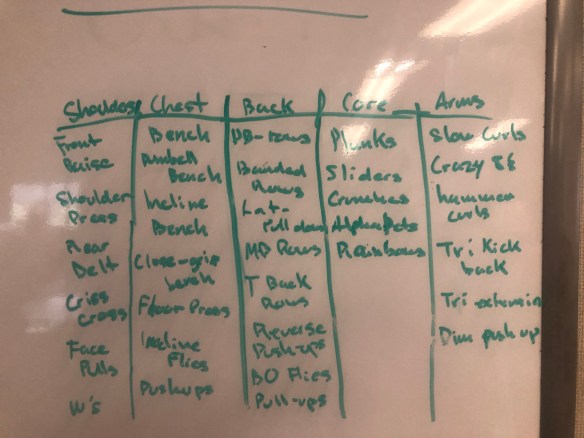 Shoulders
Front
Raise
Shoulder
Press
Rear
Delt
Criss
cross
Face
Pulls
W's
Chest
Bench
Dumbell
Bench
Incline
Bench
Close-grip
bench
Floor Press
Incline
Flies
Pushups
Back
DB-rows
Banded
Rows
Lat-
Pull down
MB Rows
T Back
Rows
Reverse
Pushups
BO Flies
Pull-ups
Core
Planks
Sliders
Crunches
Alphabets
Rainbows
Arms
Slow Curls
Crazy 8s
hammer
curls
Tri Kick
back
Tri extension
Dim push up